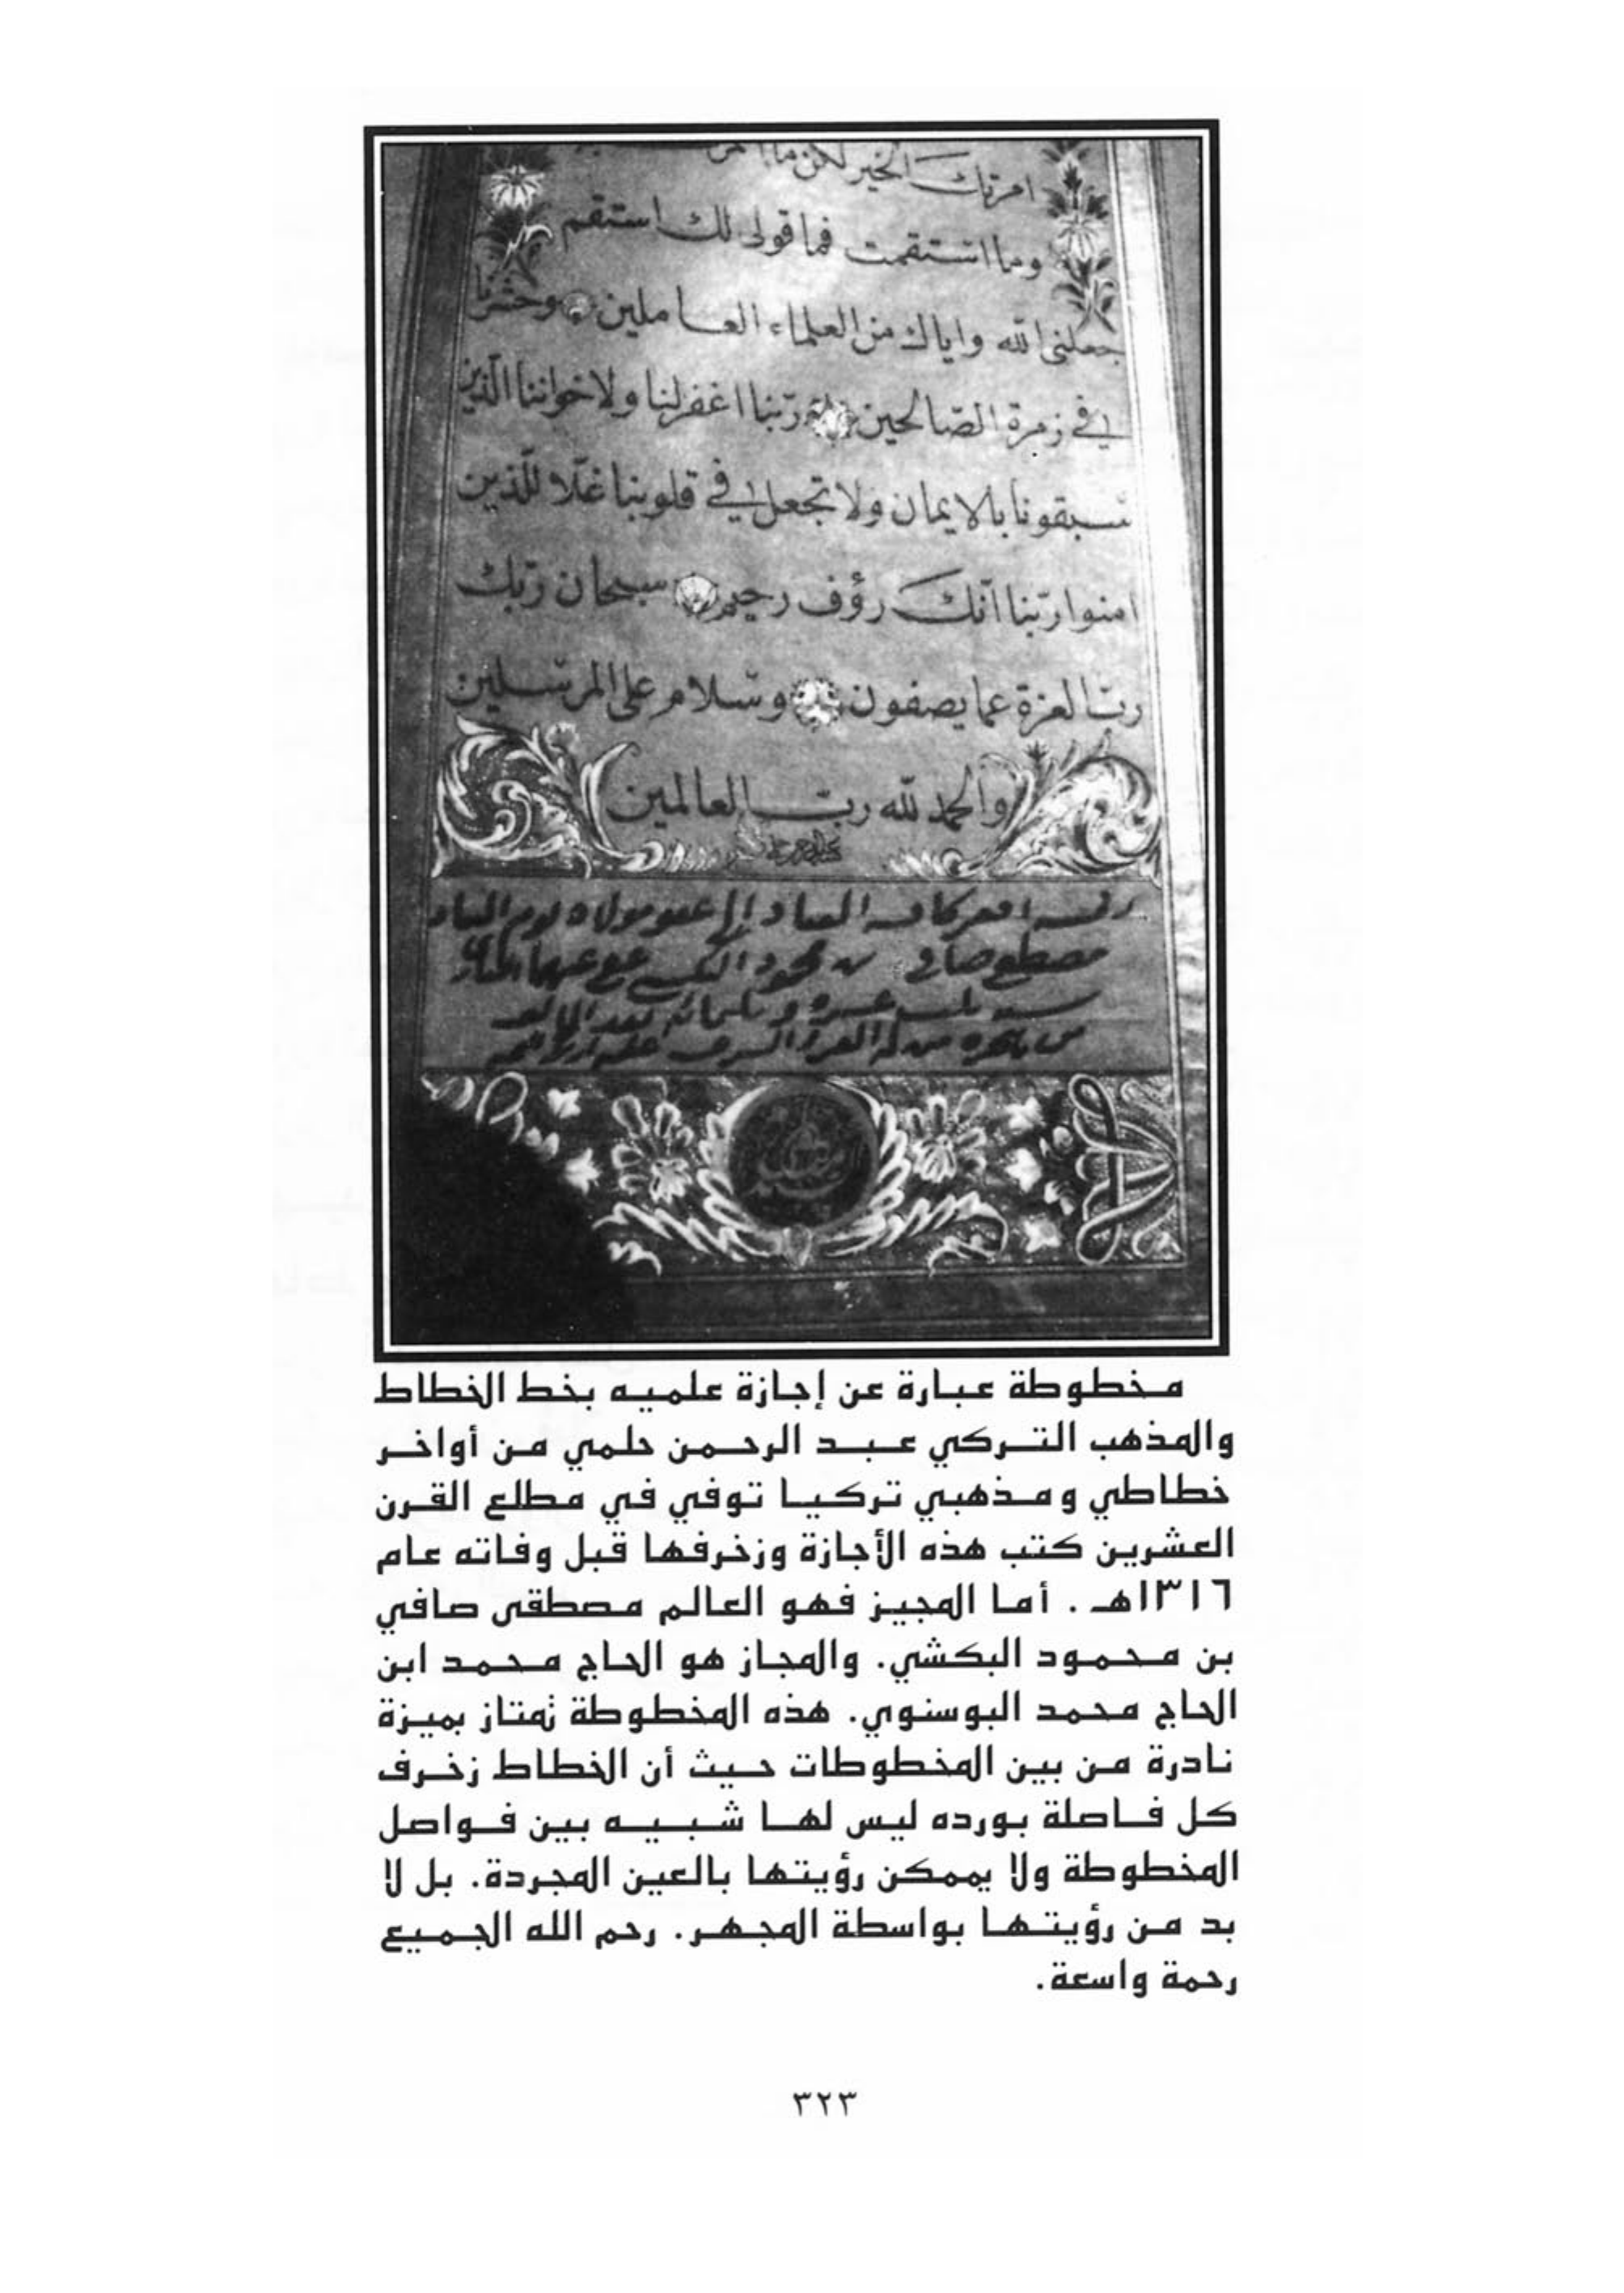 امرتك الخير لكن ما
وما استقمت فما قولى لك استقم
جعلنى الله واياك من العلماء العاملين وحشرنا
فى زمرة الصّالحين ربّنا اغفرلنا ولاخواننا الّذين
سبقونا بالايمان ولا تجعل فى قلوبنا غلّا للّذين
امنوا ربّنا انّك رؤف رحيم سبحان ربّك
ربّ العزة عما يصفون وسلام على المرسلين
والحمد لله ربّ العالمين
العباد إلى عفو مولاه يوم
مصطفى صافي بن محمود عفي عنهما
سنة عشرة وثلثمائة بعد الالف
من هجرة من له العز والشرف
مخطوطة عبارة عن إجازة علميه بخط الخطاط
والمذهب التركي عبد الرحمن حلمي من أواخر
خطاطي ومذهبي تركيا توفي في مطلع القرن
العشرين كتب هذه الأجازة وزخرفها قبل وفاته عام
١٣١٦هـ . أما المجيز فهو العالم مصطقى صافي
بن محمود البكشي. والمجاز هو الحاج محمد ابن
الحاج محمد البوسنوي. هذه المخطوطة تمتاز بميزة
نادرة من بين المخطوطات حيث أن الخطاط زخرف
كل فاصلة بورده ليس لها شبيه بين فواصل
المخطوطة ولا يممكن رؤيتها بالعين المجردة. بل لا
بد من رؤيتها بواسطة المجهر. رحم الله الجميع
رحمة واسعة.
٣٢٣